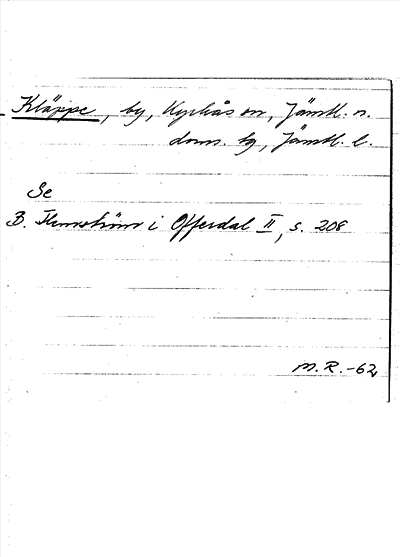 Kläppe, by, Kyrkås sn, Jämtl. n.
doms. by, Jämtl. l.
Se
B. Flemström i Offerdal II, s. 208
M.R.-62